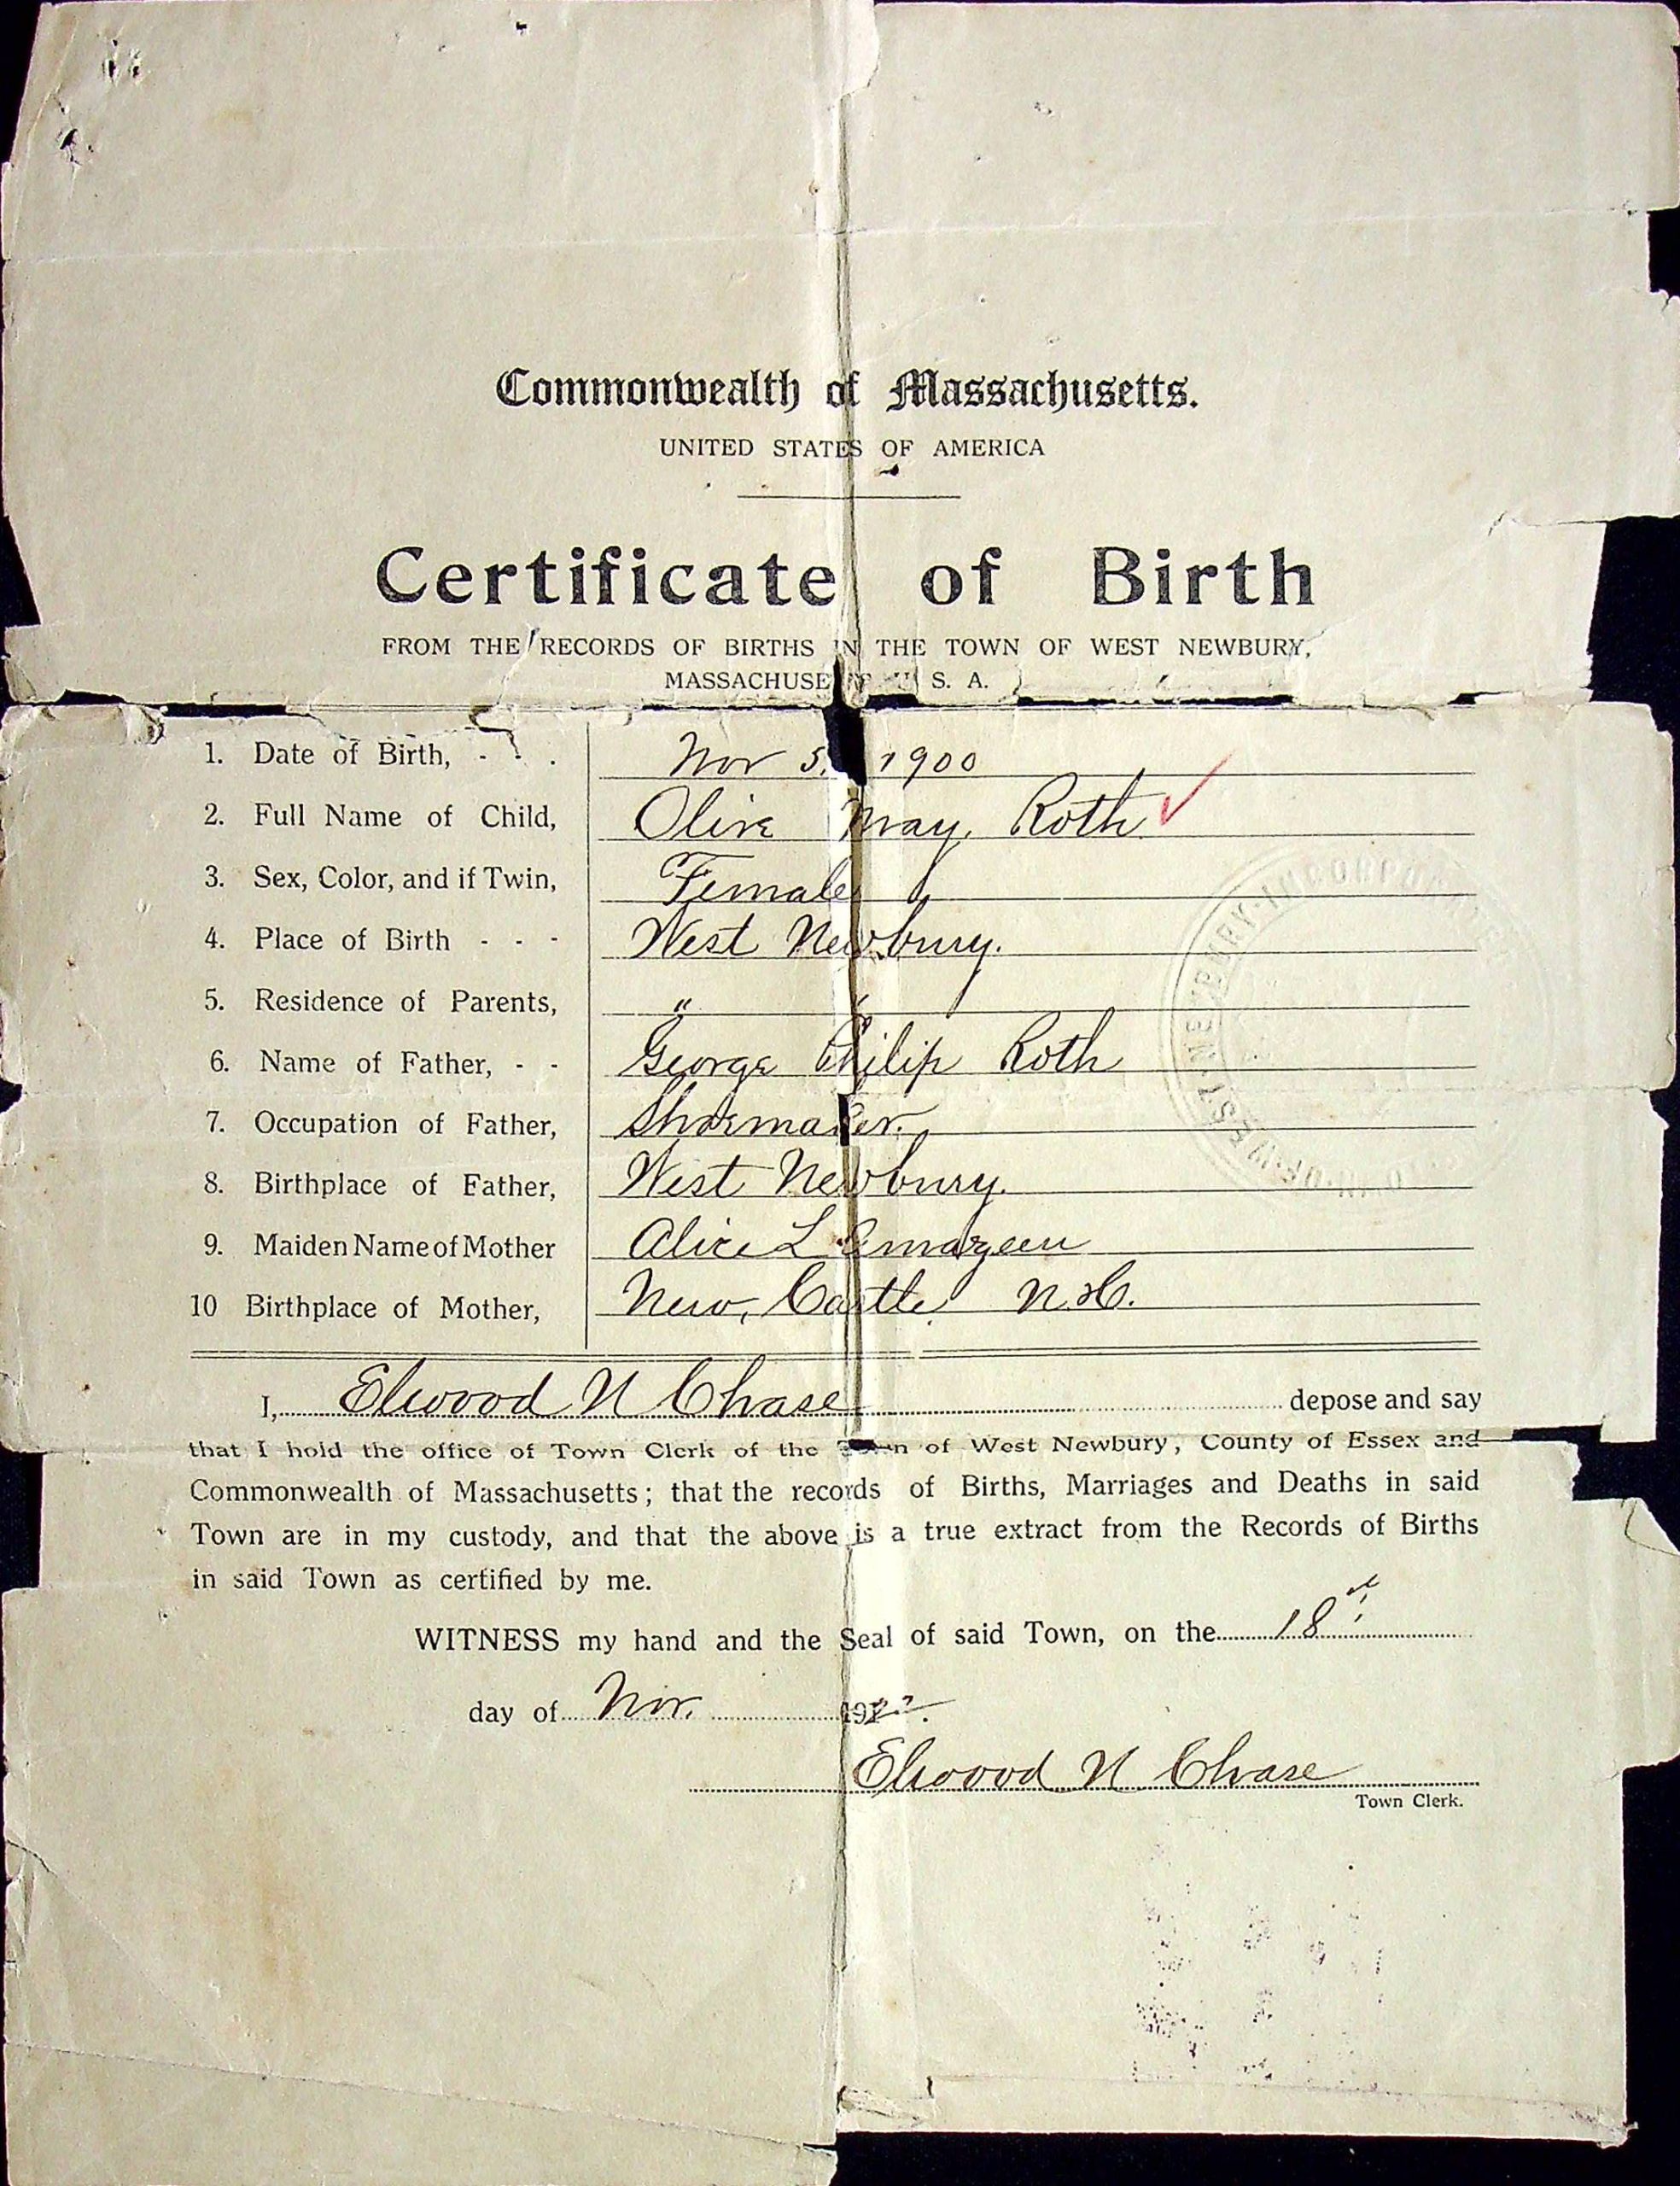 Commonwealth of Massachusetts.
UNITED STATES OF AMERICA
Certificate of Birth
FROM THE RECORDS OF BIRTHS IN THE TOWN OF WEST NEWBURY,
MASSACHUSE U. S. A.
1. Date of Birth, - - . Nov 5, 1900
2. Full Name of Child, Olive May Roth ✓
3. Sex, Color, and if Twin, Female
4. Place of Birth - - - West Newbury.
5. Residence of Parents, " "
6. Name of Father, - - George Philip Roth
7. Occupation of Father, Shoemaker.
8. Birthplace of Father, West Newbury.
9. Maiden Name of Mother Alice L Amazeen
10 Birthplace of Mother, New Castle N.H.
I, Elwood N Chase depose and say
that I hold the office of Town Clerk of the Town of West Newbury, County of Essex and
Commonwealth of Massachusetts; that the records of Births, Marriages and Deaths in said
Town are in my custody, and that the above is a true extract from the Records of Births
in said Town as certified by me.
WITNESS my hand and the Seal of said Town, on the 18th
day of Nov. 1922.
Elwood N Chase
Town Clerk.